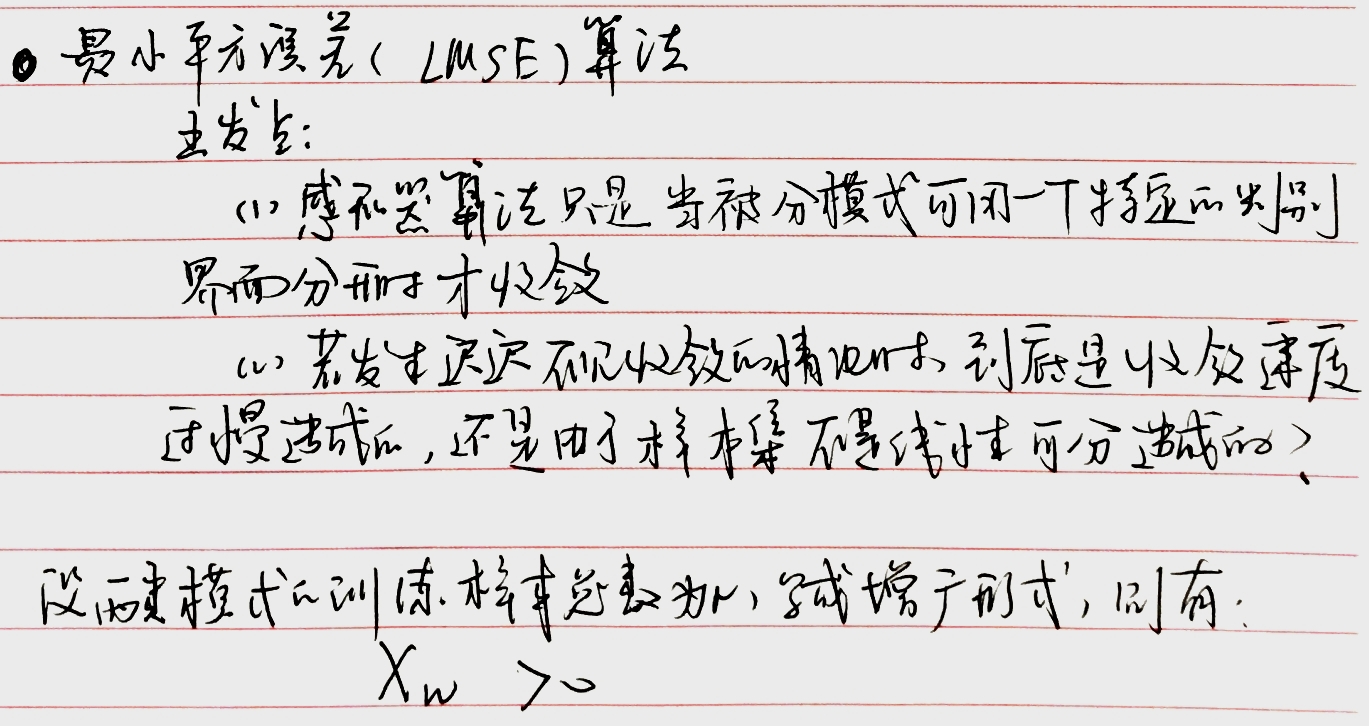 • 最小平方误差(LMSE)算法
出发点:
(1) 感知器算法只是当被分模式可用一个特定的判别
界面分开时才收敛
(2) 若发生迟迟不见收敛的情况时、到底是收敛速度
过慢造成的,还是由于样本集不是线性可分造成的?
设两类模式的训练样本总数为N,写成增广形式,则有:
Xw >0